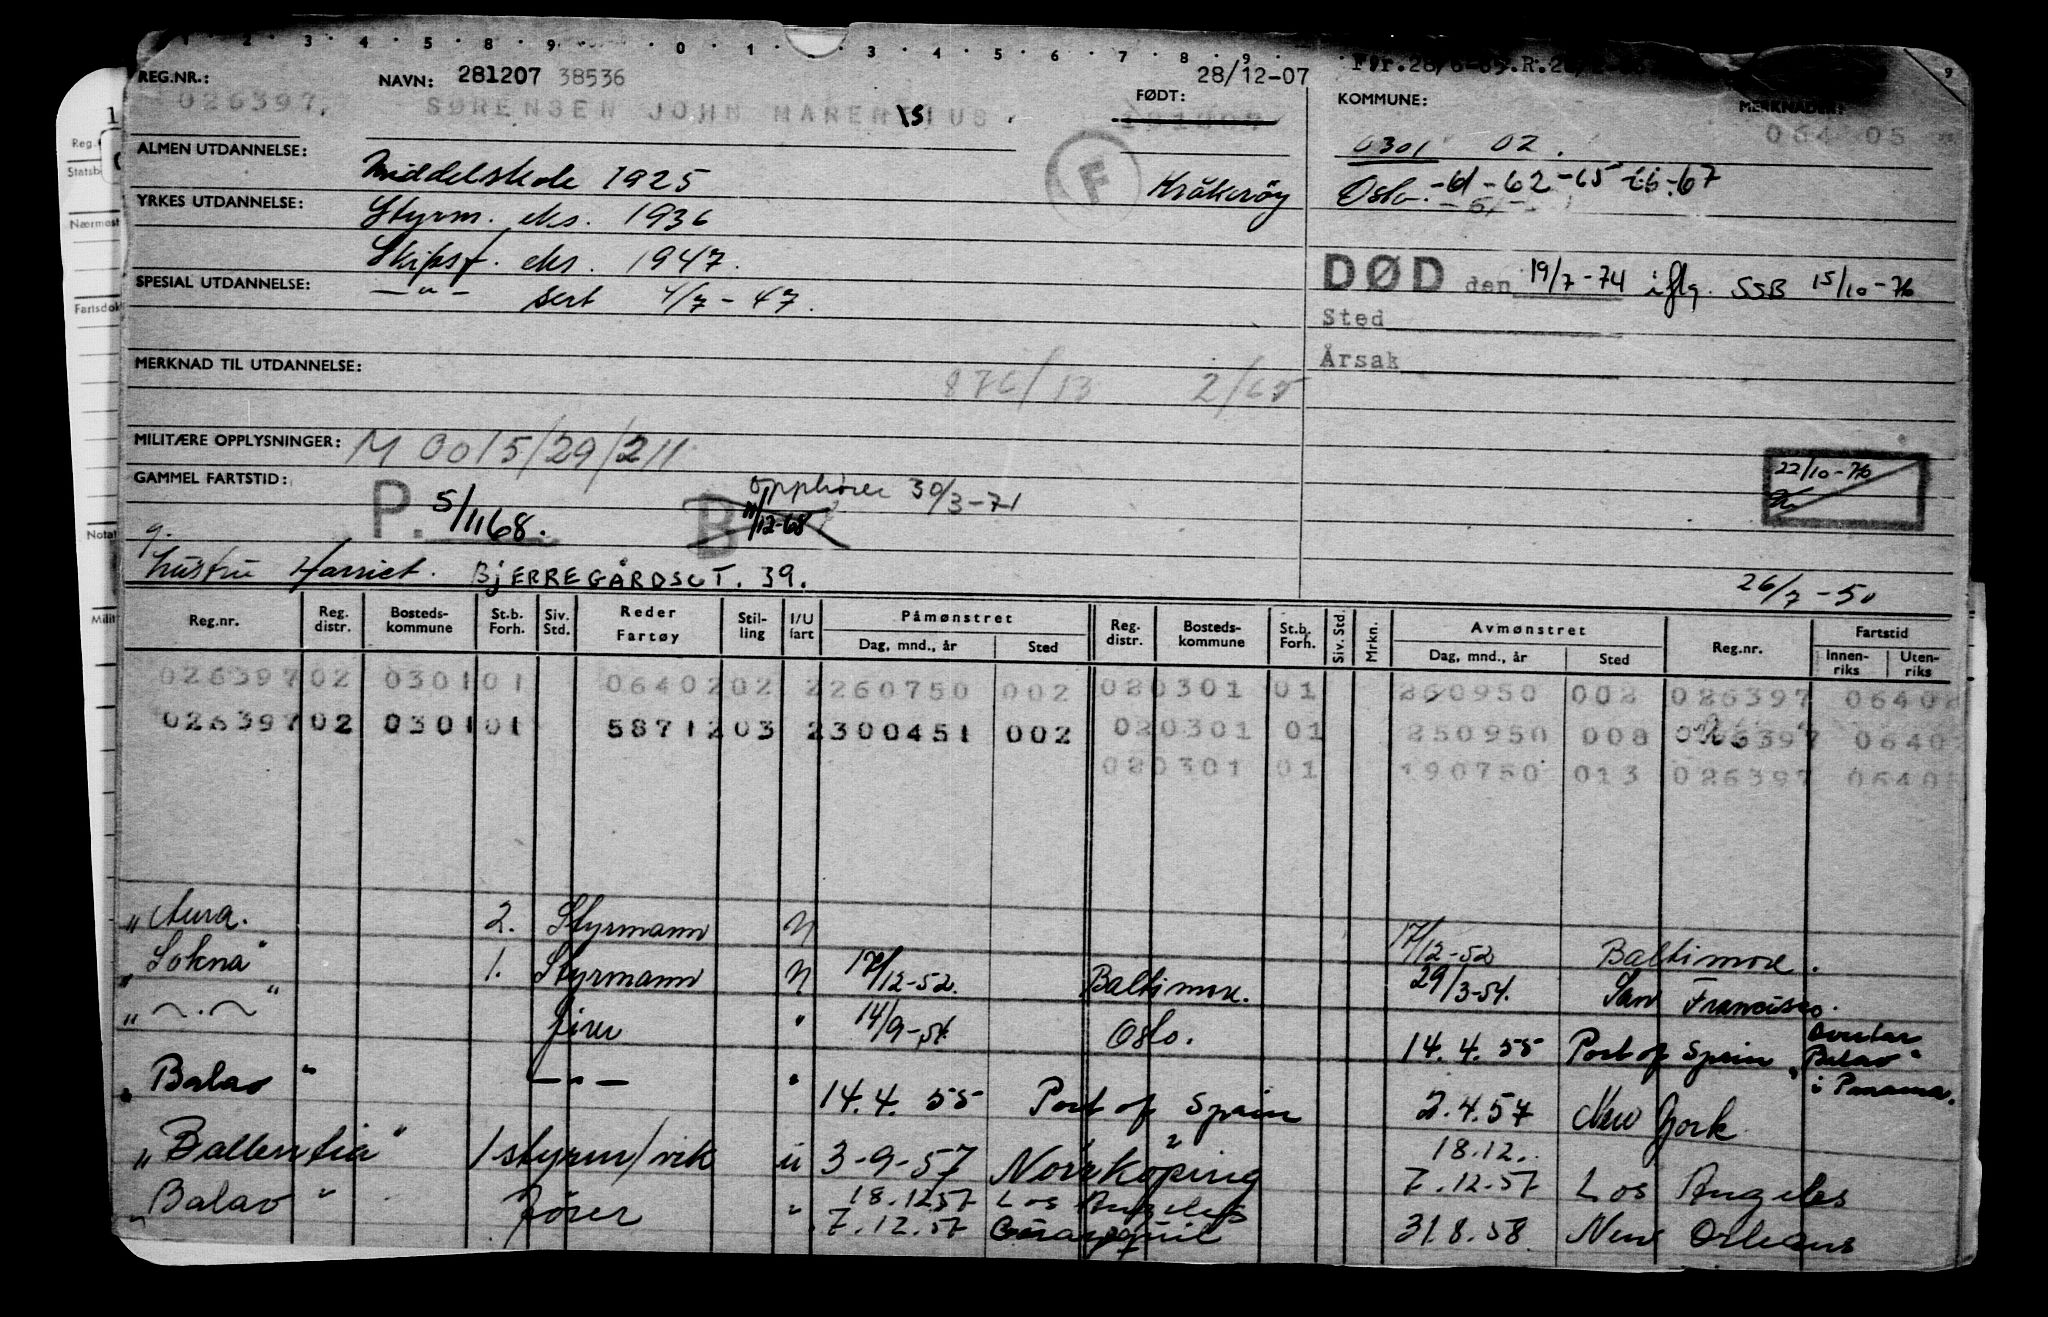 REG.NR.: NAVN: 281207 38536 28/12-07
026397. SØRENSEN JOHN FØDT: KOMMUNE: MERKNADER:
0301 02. 064 05
ALMEN UTDANNELSE: Middelskole 1925 F Kråkerøy Oslo. -61-62-65-66-67
YRKES UTDANNELSE: Styrm. eks. 1936
Skipsf. eks. 1947.
SPESIAL UTDANNELSE: — " — sert 4/7-47.
DØD den 19/7-74 iflg. SSB 15/10-76
Sted
Årsak
MERKNAD TIL UTDANNELSE: 876/13 2/65
MILITÆRE OPPLYSNINGER: M 0015/29/211
22/10-76
GAMMEL FARTSTID: P. 5/1168. B 11/12-68 opphører 30/3-71
g.
hustru Harriet. BJERREGÅRDSGT. 39. 26/7-50
Reg.nr. Reg. distr. Bosteds-kommune St.b. Forh. Siv. Std. Reder Fartøy Stil-ling I/U fart Påmønstret Dag, mnd., år Sted Reg. distr. Bosteds-kommune St.b. Forh. Siv. Std. Mrkn. Avmønstret Dag, mnd., år Sted Reg.nr. Fartstid Innen-riks Uten-riks
026397 02 0301 01 06402 02 2 260750 002 02 0301 01 260950 002 026397 0640
026397 02 0301 01 58712 03 2 300451 002 02 0301 01 250950 008 026397 0640
02 0301 01 190750 013 026397 0640
" Aura. 2. Styrmann U 17/12-52 Baltimore.
" Sokna" 1. Styrmann U 17/12-52. Baltimore. 29/3-54. San Francisco.
" — . — " fører " 14/9-54 Oslo. 14.4.55 Port of Spain overtar "Balao" i Panama.
" Balao " — " — " 14.4.55 Port of Spain 2.4.57 New York
" Ballenita" 1 styrm/vik u 3-9-57 Norrköping 18.12.
7.12.57 Los Angeles
" Balao " fører " 18.12.57 Los Angeles
7.12.57 Guayaquil 31.8.58 New Orleans